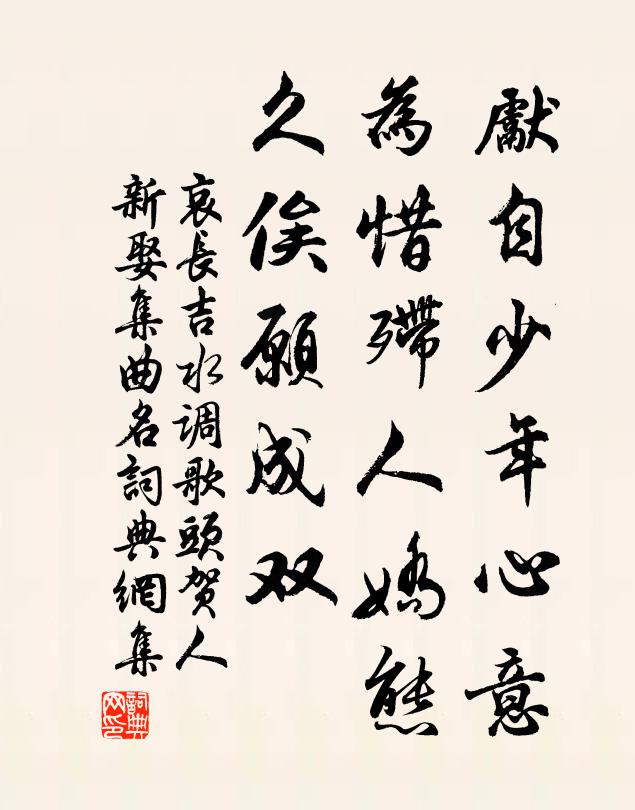 獻自少年心意
為惜殢人嬌態
久俟願成双
哀長吉水调歌頭贺人
新娶集曲名詞典網集
詞典网印